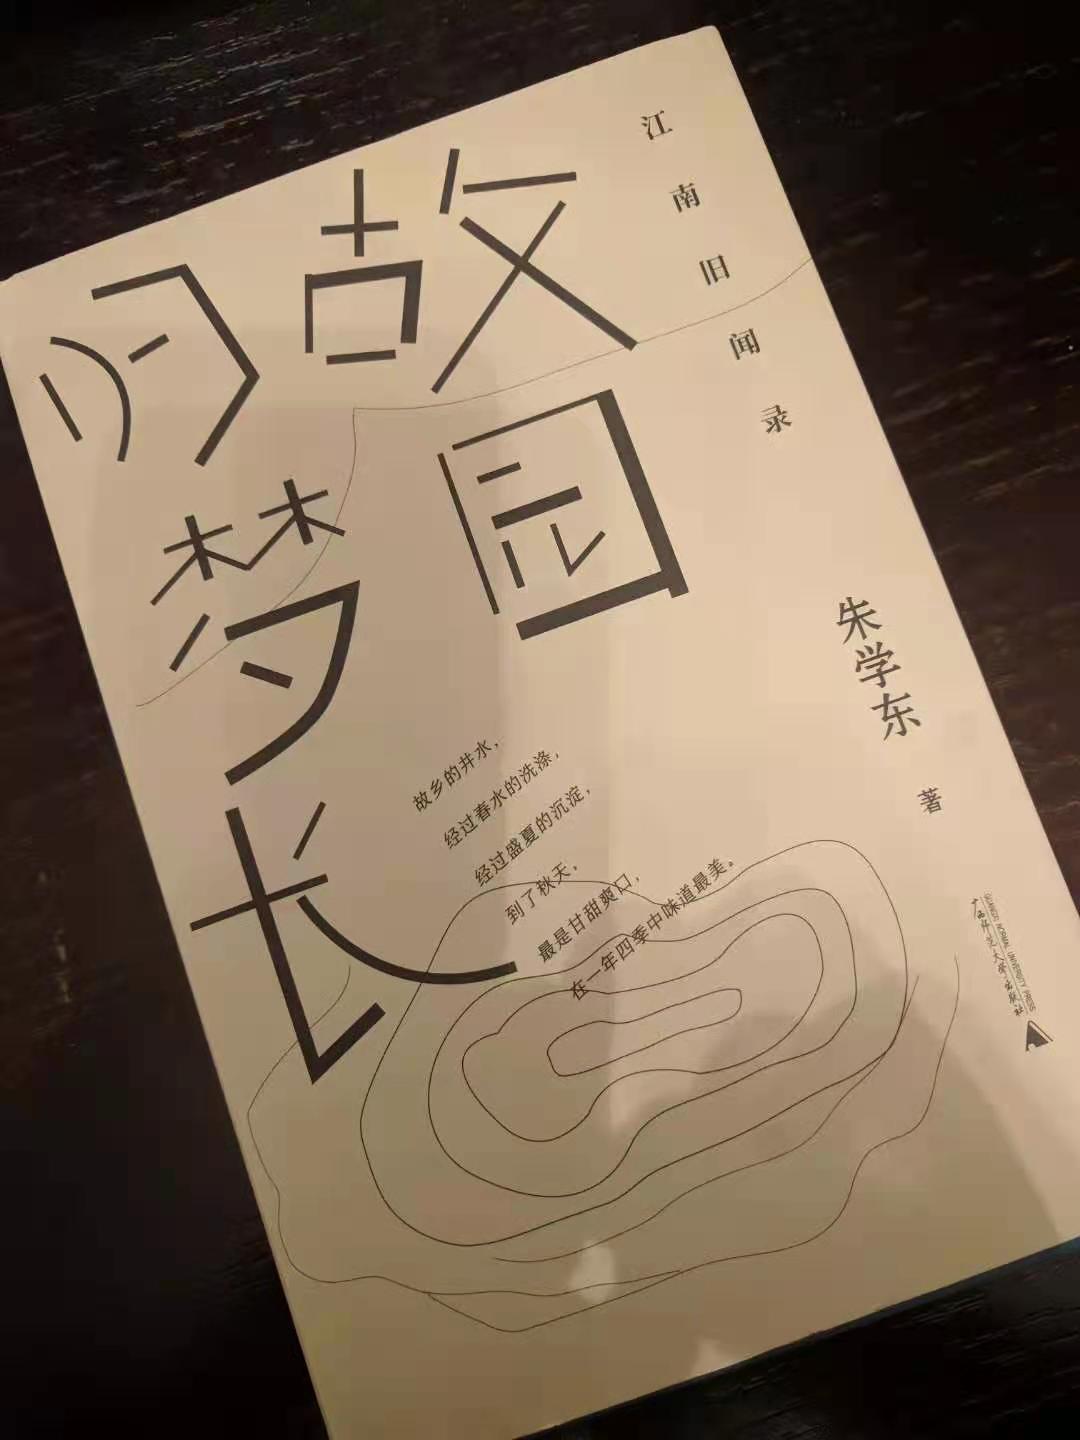 江南旧闻录
故园
归梦长
朱学东
著
故乡的井水，
经过春水的洗涤，
经过盛夏的沉淀，
到了秋天，
最是甘甜爽口，
在一年四季中味道最美。
广西师范大学出版社